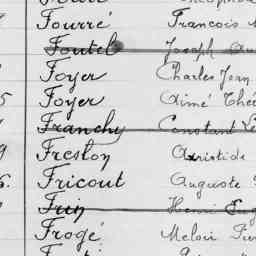 Fourré François
Foutel Joseph
Foyer Charles Jean
5 Foyer Aimé
Franchy Constant
9 Freston Aristide
6. Fricout Auguste
Frin Henri
Frogé